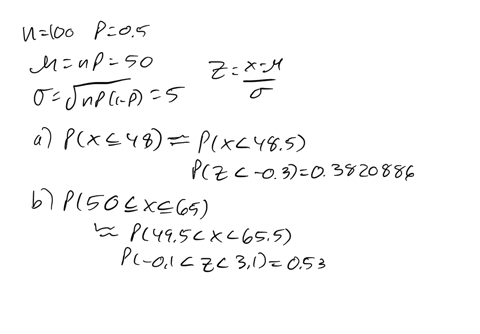 n=100 P=0.5
μ=nP=50
z=x-μ/σ
σ=√nP(1-P)=5
a) P(x≤48)≈P(x<48.5)
P(z<-0.3)=0.3820886
b) P(50≤x≤65)
≈ P(49.5<x<65.5)
P(-0.1<z<3.1)=0.53